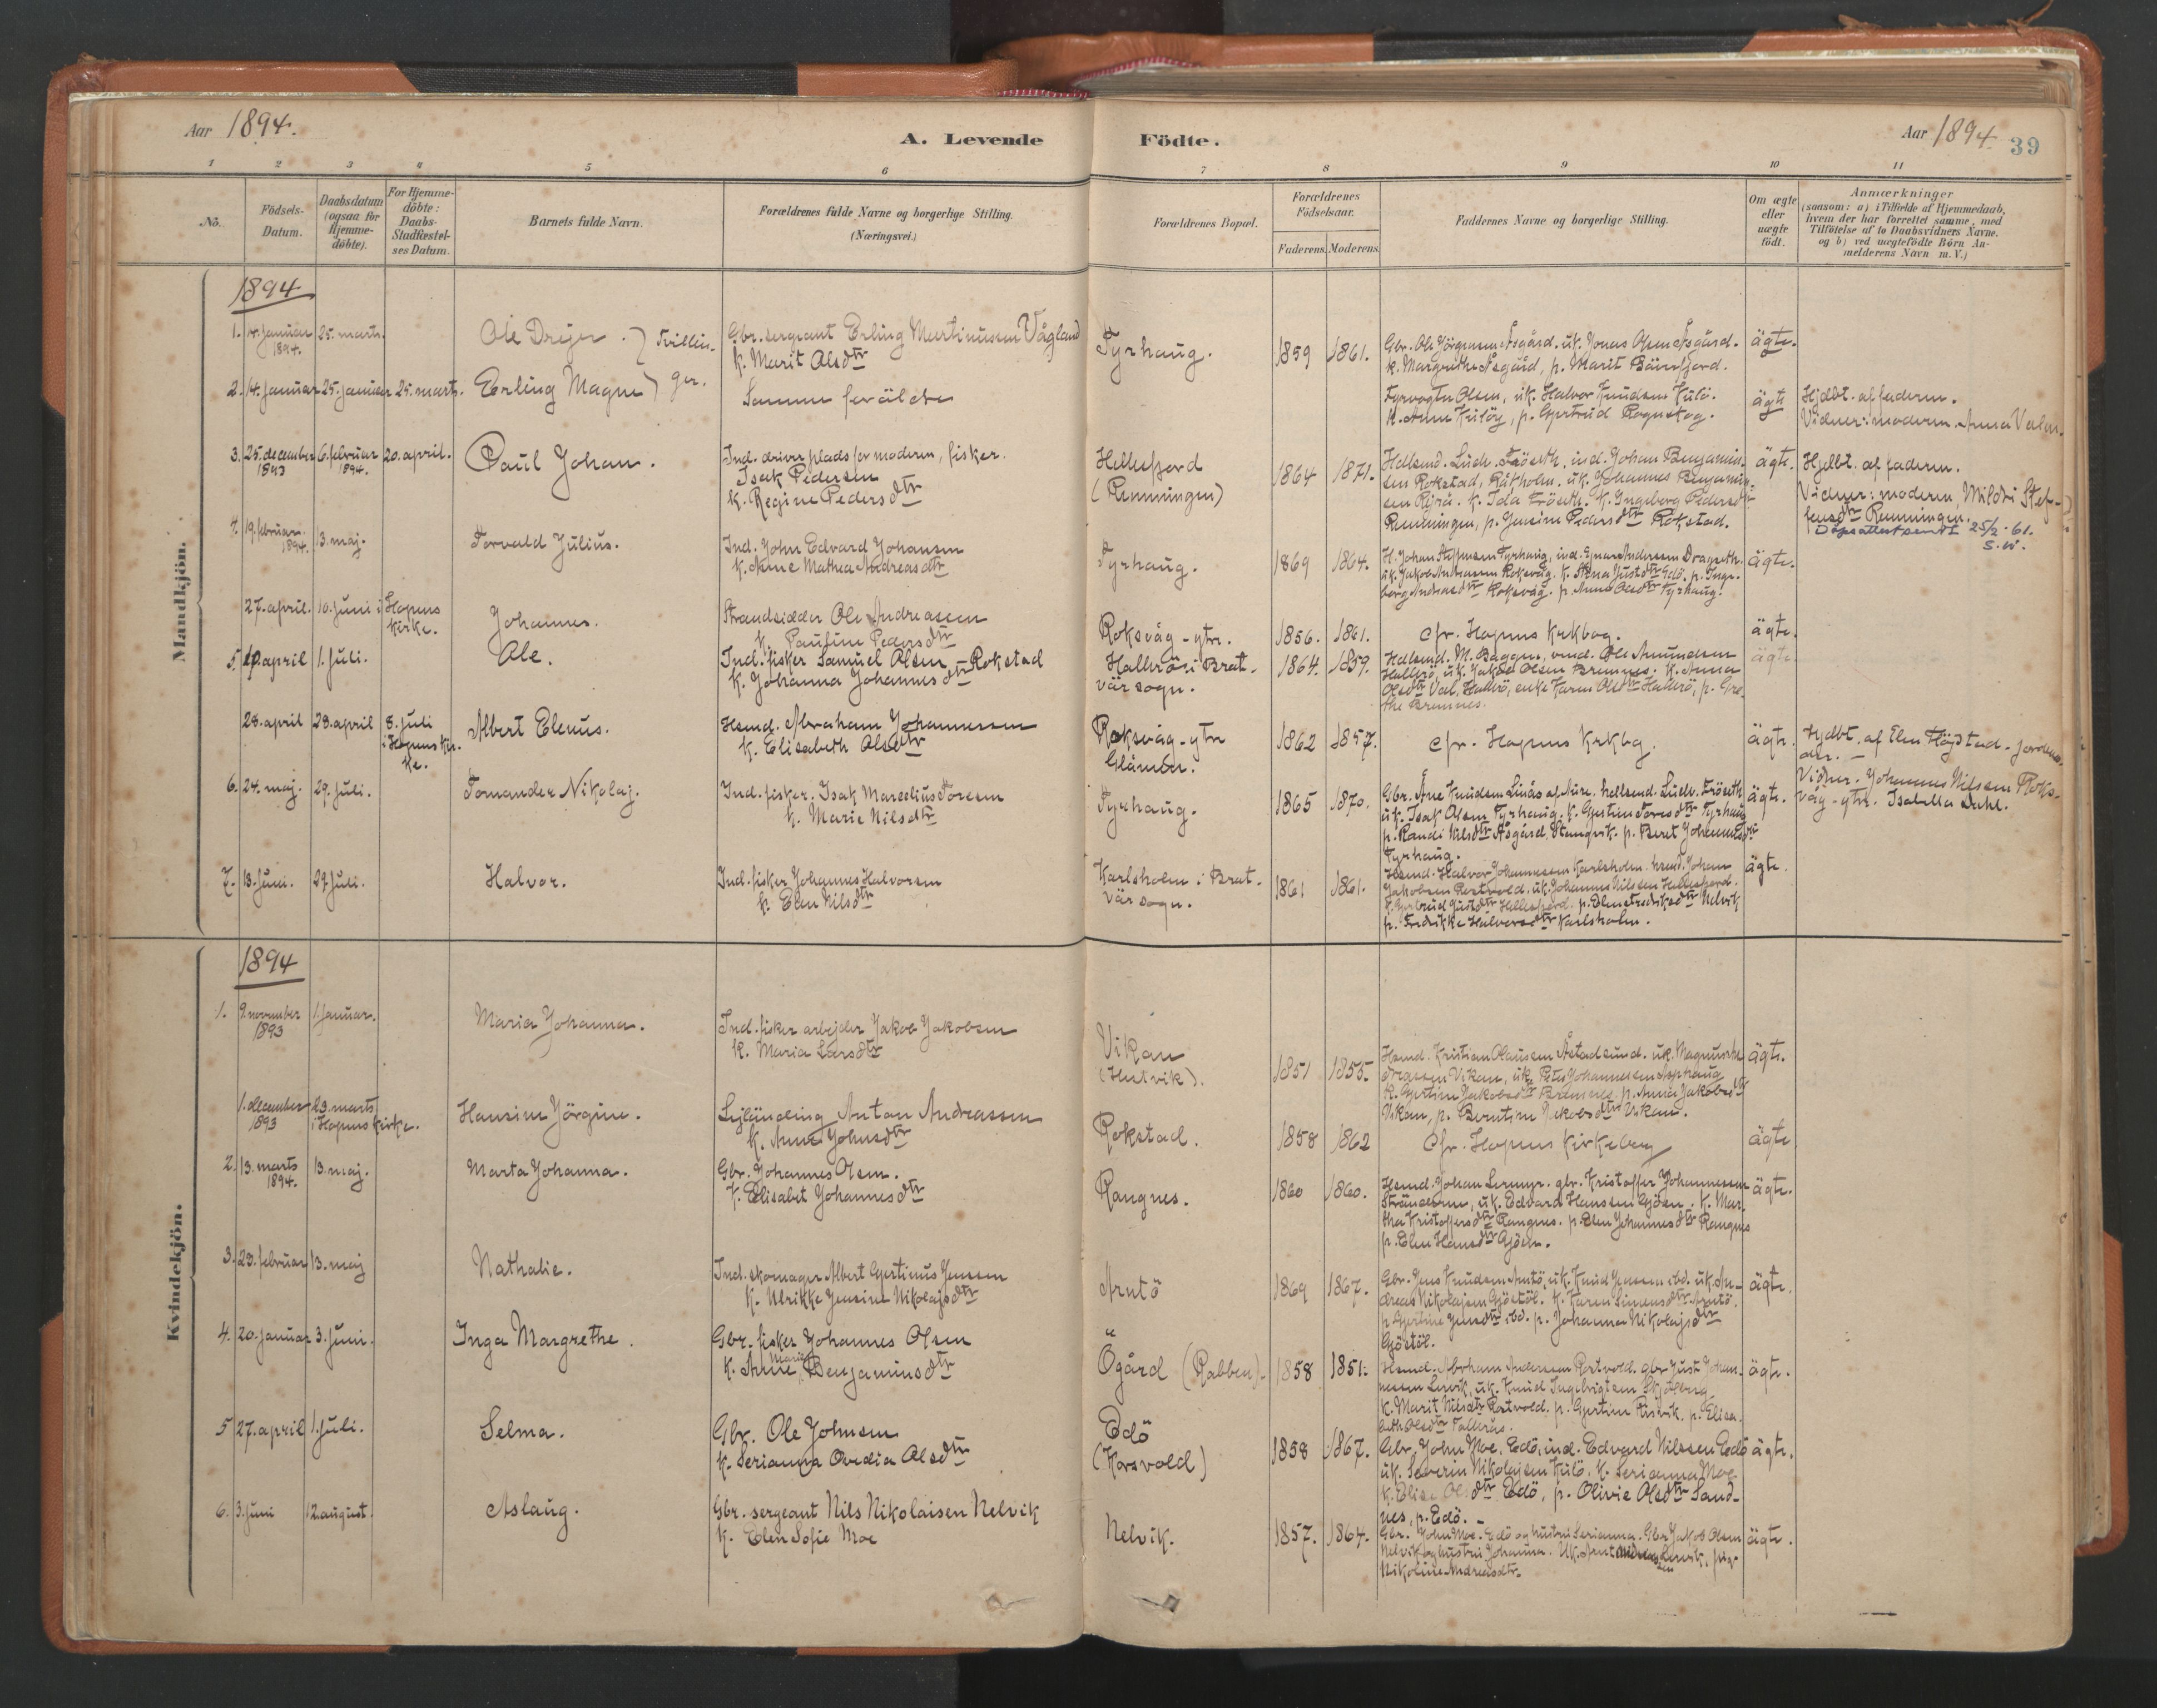 Aar 1894.
A. Levende
Födte.
Aar 1894
39
1 2 3 4 5 6 7 8 9 10 11
No.
Födsels-
Datum.
Daabsdatum
(ogsaa for
Hjemme-
döbte).
For Hjemme-
döbte:
Daabs-
Stadfæstel-
ses Datum.
Barnets fulde Navn.
Forældrenes fulde Navne og borgerlige Stilling.
(Næringsvei.)
Forældrenes Bopæl.
Forældrenes
Födselsaar.
Faderens. Moderens.
Faddernes Navne og borgerlige Stilling.
Om ægte
eller
uægte
födt.
Anmærkninger
(saasom: a) i Tilfælde af Hjemmedaab,
hvem der har forrettet samme, med
Tilföielse af to Daabsvidners Navne.
og b) ved uægtefödte Börn An-
melderens Navn m. V.)
Mandkjön.
1894
1. 14. januar 1894. 25. marts.
Ole Drejer. Tvillin-
Gbr. sergeant Erling Martinussen Vågland
k. Marit Olsdtr
Tyrhaug.
1859 1861.
Gbr. Ole Jörgensen Åsgård. uk. Jonas Olsen Åsgård.
k. Margrethe Åsgård, p. Marit Bäverfjord.
ägte.
2. 14. januar 25. januar 25. marts.
Erling Magne ger.
Samme forälder
Fyrvogter Olsen, uk. Halvor Knudsen Kulö.
k. Anne Kulöy, p. Gjertrud Rognskog.
ägt
Hjdbt. af faderen.
Vidner: moderen. Anna
3. 25. december 1893 6. februar 1894. 20. april.
Paul Johan.
Ind. driver plads for moderen, fisker.
Isak Pedersen
k. Regine Pedersdtr
Hellesfjord
(Renningen)
1864 1871.
Hdlsmd. Ludv. Fröseth, ind. Johan Benjamin-
sen Rokstad, Råkholm. uk. Johannes Benjamin-
sen k. Ida Fröseth. k. Ingeborg Pedersdtr
Renningen, p. Jensine Pedersdtr Rokstad.
ägte.
Hjdbt. af faderen.
Vidner: moderen, Mildri Stef-
fensdtr Renningen.
Dåpsattest sendt 25/2-61.
4. 19. februar 1894. 13. maj.
Torvald Julius.
Ind. John Edvard Johansen
k. Anne Mathea Andreasdtr
Tyrhaug.
1869 1864.
H. Johan Steffensen Tyrhaug, ind. Einar Andersen Drageseth.
uk. Jakob Andreasen Roksvåg. k. Justsdtr Edö. p. Inge-
borg Andreasdtr Roksvåg. p. Anne Olsdtr Tyrhaug.
ägte.
27. april. 10. juni i Hopens kirke.
Johannes.
Strandsidder Ole Andreassen
k. Pauline Pedersdtr
Roksvåg - ytr.
1856. 1861.
cfr. Hopens krkbog.
ägte.
5. april 1. juli.
Ole.
Ind. fisker Samuel Olsen Rokstad
k. Johanna Johannesdtr
Hallerö i Brat-
vär sogn.
1864 1859.
Hdlsmd. M. Bagge, ind. Ole Amundsen
Hallerö, uk. Jakob Olsen Bremnes. k. Anna
Olsdtr Hallerö, enke Karen Olsdtr Hallerö, p. Gre-
the Bremnes.
ägte.
28. april 28. april 8. juli i Hopens kir-
ke.
Albert Elenus.
Hsmd. Abraham Johannessen
k. Elisabeth Olsdtr
Roksvåg - ytre
Glåmen.
1862 1857.
cfr. Hopens krkbg.
ägte.
Hjdbt. af Elen Höjstad - jordemo-
der. -
Vidner. Johannes Nilsen Roks-
våg - ytr. Isabella Dahl.
6. 24. maj. 29. juli.
Tomander Nikolaj.
Ind. fisker. Isak Marselius Toresen
k. Marie Nilsdtr
Tyrhaug.
1865 1870.
Gbr. Arne Knudsen Linås af Aure. hdlsmd. Ludv. Fröseth
uk. Isak Olsen Tyrhaug. k. Gjertine Toresdtr Tyrhaug
p. Randi Nilsdtr Åsgård, Stangvik. p. Beret Johannesdtr
Tyrhaug.
ägte.
7. 13. juni. 29. juli.
Halvor.
Ind. fisker Johannes Halvorsen
k. Elen Nilsdtr
Karlsholm i Brat-
vär sogn.
1861 1861.
Hsmd. Halvor Johannessen Karlsholm. hsmd. Johan
Jakobsen Rostvold. uk. Johannes Nilsen Hellesfjord.
k. Gjertrud Justsdtr Hellesfjord. p. Elen Fredriksdtr Nelvik
p. Fredrikke Halvorsdtr Karlsholm.
ägte.
Kvindekjön.
1894
1. 9. november 1893 1. januar.
Maria Johanna.
Ind. fisker arbejder Jakob Jakobsen
k. Maria Larsdtr
Vikan
(Hutvik).
1851 1855.
Hsmd. Kristian Olausen Åstadsund. uk. Magnus
Vikan, uk. Peter Johannessen Asphaug
k. Gjertine Jakobsdtr Bremnes. p. Anna Jakobsdtr
Vikan, p. Berntine Jakobsdtr Vikan.
ägte.
1. december 1893 23. marts i Hopens kirke.
Hansine Jörgine.
Lejlending Anton Andreassen
k. Anne Johnsdtr
Rokstad.
1858 1862
Cfr. Hopens kirkebog
ägte
2. 13. marts 1894. 13. maj.
Marta Johanna.
Gbr. Johannes Olsen.
k. Elisabet Johannesdtr
Rangnes.
1860 1860.
Hsmd. Johan Leremyr. gbr. Kristoffer Johannessen
Strandheim, uk. Edvard Hanssen Gjöen. k. Mar-
tha Kristoffersdtr Rangnes. p. Elen Johannesdtr Rangnes
p. Elen Hansdtr Gjöen.
ägte.
3. 23. februar 13. maj
Nathalie.
Ind. skomager Albert Gjertinus Jensen
k. Ulrikke Jensine Nikolajsdtr
Arntö
1869 1867.
Gbr. Jens Knudsen Arntö, uk. Knud Jensen ibd. uk. An-
dreas Nikolajsen Gjöstöl. k. Karen Simensdtr Arntö.
p. Gjertine Jensdtr ibd. p. Johanna Nikolajsdtr
Gjöstöl.
ägte.
4. 20. januar 3. juni.
Inga Margrethe.
Gbr. fisker Johannes Olsen
k. Anne Marie Benjaminsdtr
Ögård (Rabben).
1858 1851.
Hsmd. Abraham Andersen Rostvold. gbr. Just Johan-
nessen Lervik, uk. Knud Ingebrigtsen Skjölberg
k. Marit Nilsdtr Rostvold. p. Gjertine Risvik, p. Elisa-
beth Olsdtr Fallerås.
ägte.
5 27. april 1. juli.
Selma.
Gbr. Ole Johnsen
k. Serianna Ovedia Olsdtr
Edö
(Korsvold)
1858 1867.
Gbr. John Moe, Edö, ind. Edvard Nilssen Edö
uk. Severin Nikolajsen Kulö, k. Serianna Moe
k. Elise Olsdtr Edö, p. Olivie Olsdtr Sand-
nes, p. Edö. -
ägte.
6. 3. juni 12. august.
Aslaug.
Gbr. sergeant Nils Nikolaisen Nelvik
k. Elen Sofie Moe
Nelvik.
1857. 1864.
Gbr. John Moe. Edö og hustru Serianna. Gbr Jakob Olsen
Nelvik og hustru Johanna. Uk. Arnt Andreassen Lervik, pige
Nikoline Andreasdtr.
ägte.